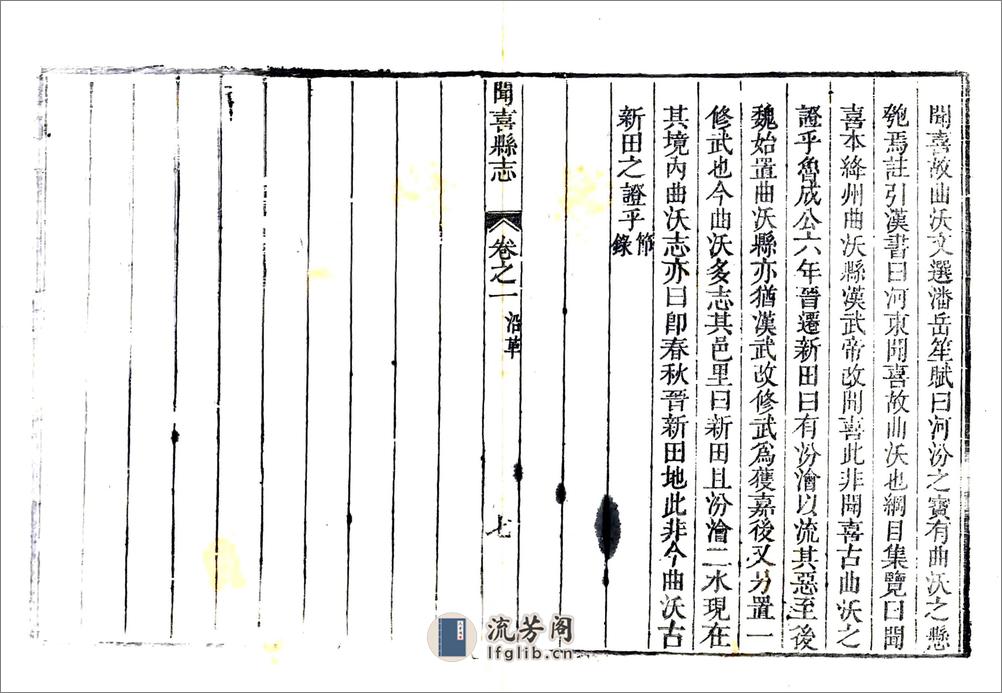 聞喜故曲沃文選潘岳笙賦曰河汾之寶有曲沃之懸
匏焉註引漢書曰河東聞喜故曲沃也綱目集覽曰聞
喜本絳州曲沃縣漢武帝改聞喜此非聞喜古曲沃之
證乎魯成公六年晉遷新田曰有汾澮以流其惡至後
魏始置曲沃縣亦猶漢武改修武爲獲嘉後又另置一
修武也今曲沃多志其邑里曰新田且汾澮二水現在
其境內曲沃志亦曰卽春秋晉新田地此非今曲沃古
新田之證乎節錄
聞喜縣志
卷之一
沿革
七
流芳阁
lfglib.cn